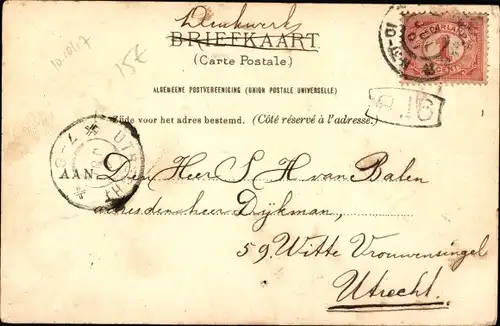 Drukwerk
BRIEFKAART
(Carte Postale)
ALGEMEENE POSTVEREENIGING (UNION POSTALE UNIVERSELLE)
Zijde voor het adres bestemd. (Côté réservé à l'adresse.)
AAN Den Heer S. H van Balen
adres den heer Dijkman,
59 Witte Vrouwensingel
Utrecht.
15€
1